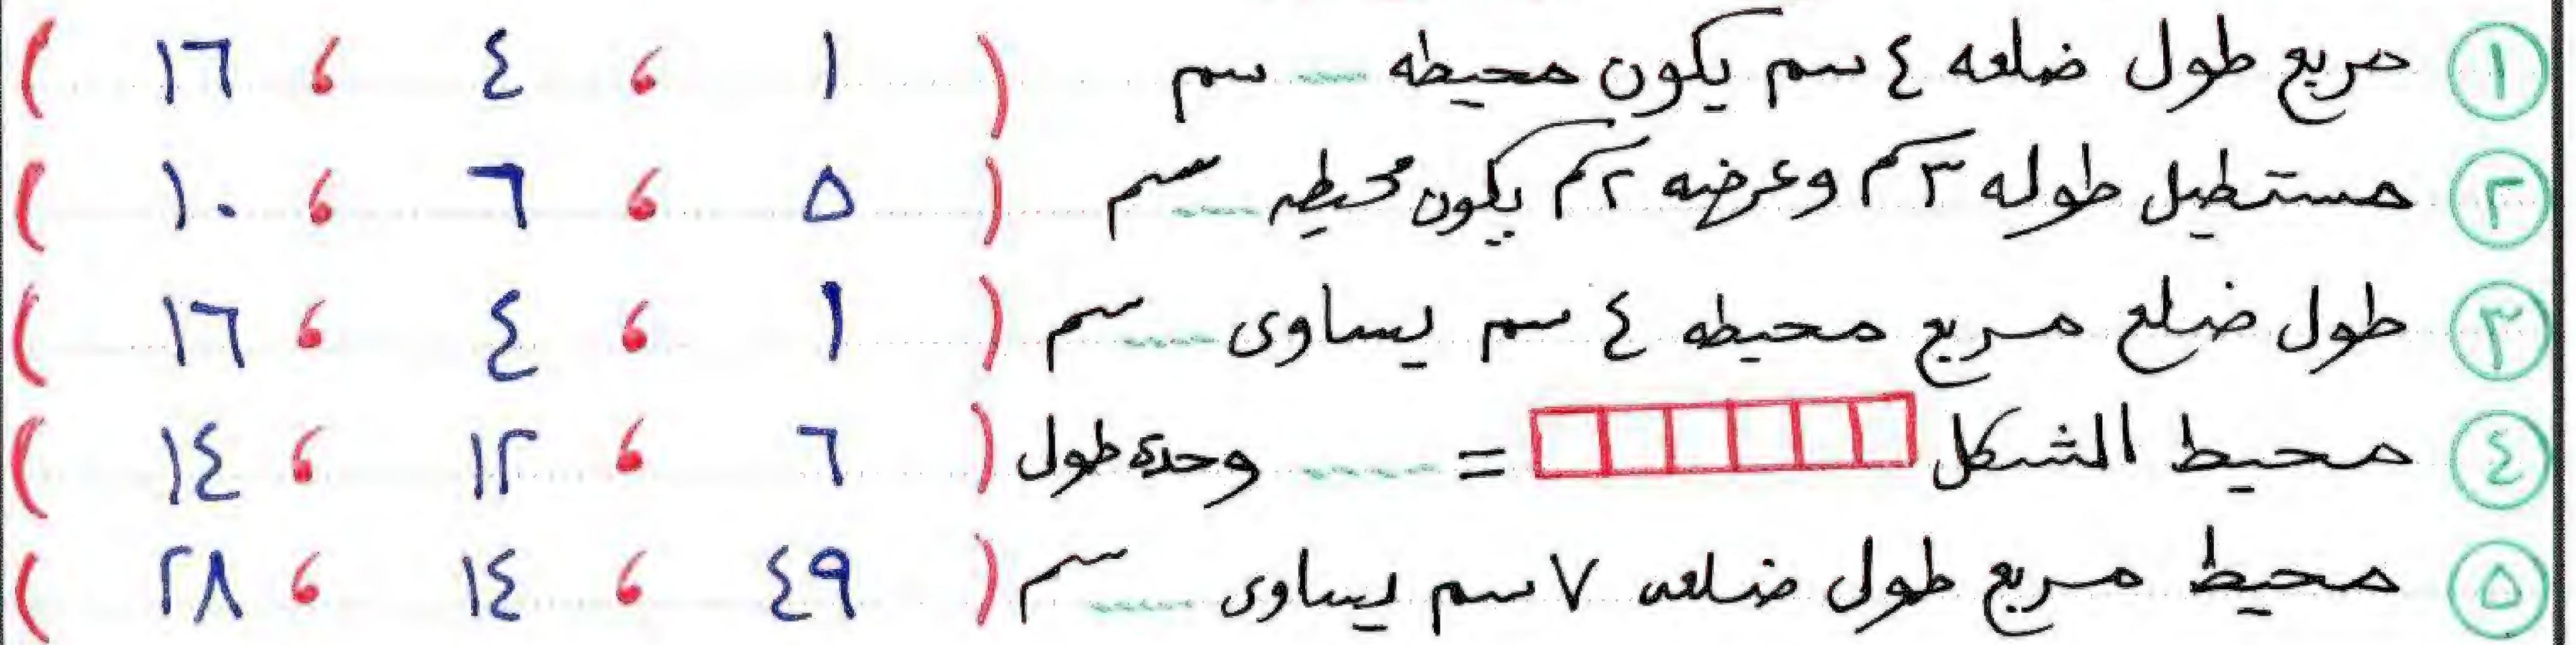 ١ مربع طول ضلعه ٤ سم يكون محيطه ---- سم ( ١ ، ٤ ، ١٦ )
٢ مستطيل طوله ٣ سم وعرضه ٢ سم يكون محيطه ---- سم ( ٥ ، ٦ ، ١٠ )
٣ طول ضلع مربع محيطه ٤ سم يساوى ---- سم ( ١ ، ٤ ، ١٦ )
٤ محيط الشكل = ---- وحدة طول ( ٦ ، ١٢ ، ١٤ )
٥ محيط مربع طول ضلعه ٧ سم يساوى ---- سم ( ٤٩ ، ١٤ ، ٢٨ )